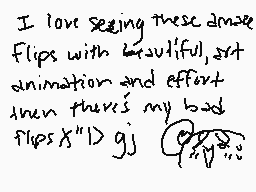 I love seeing these amaze
flips with beautiful, art
animation and effort
then there's my bad
flips X"D gj